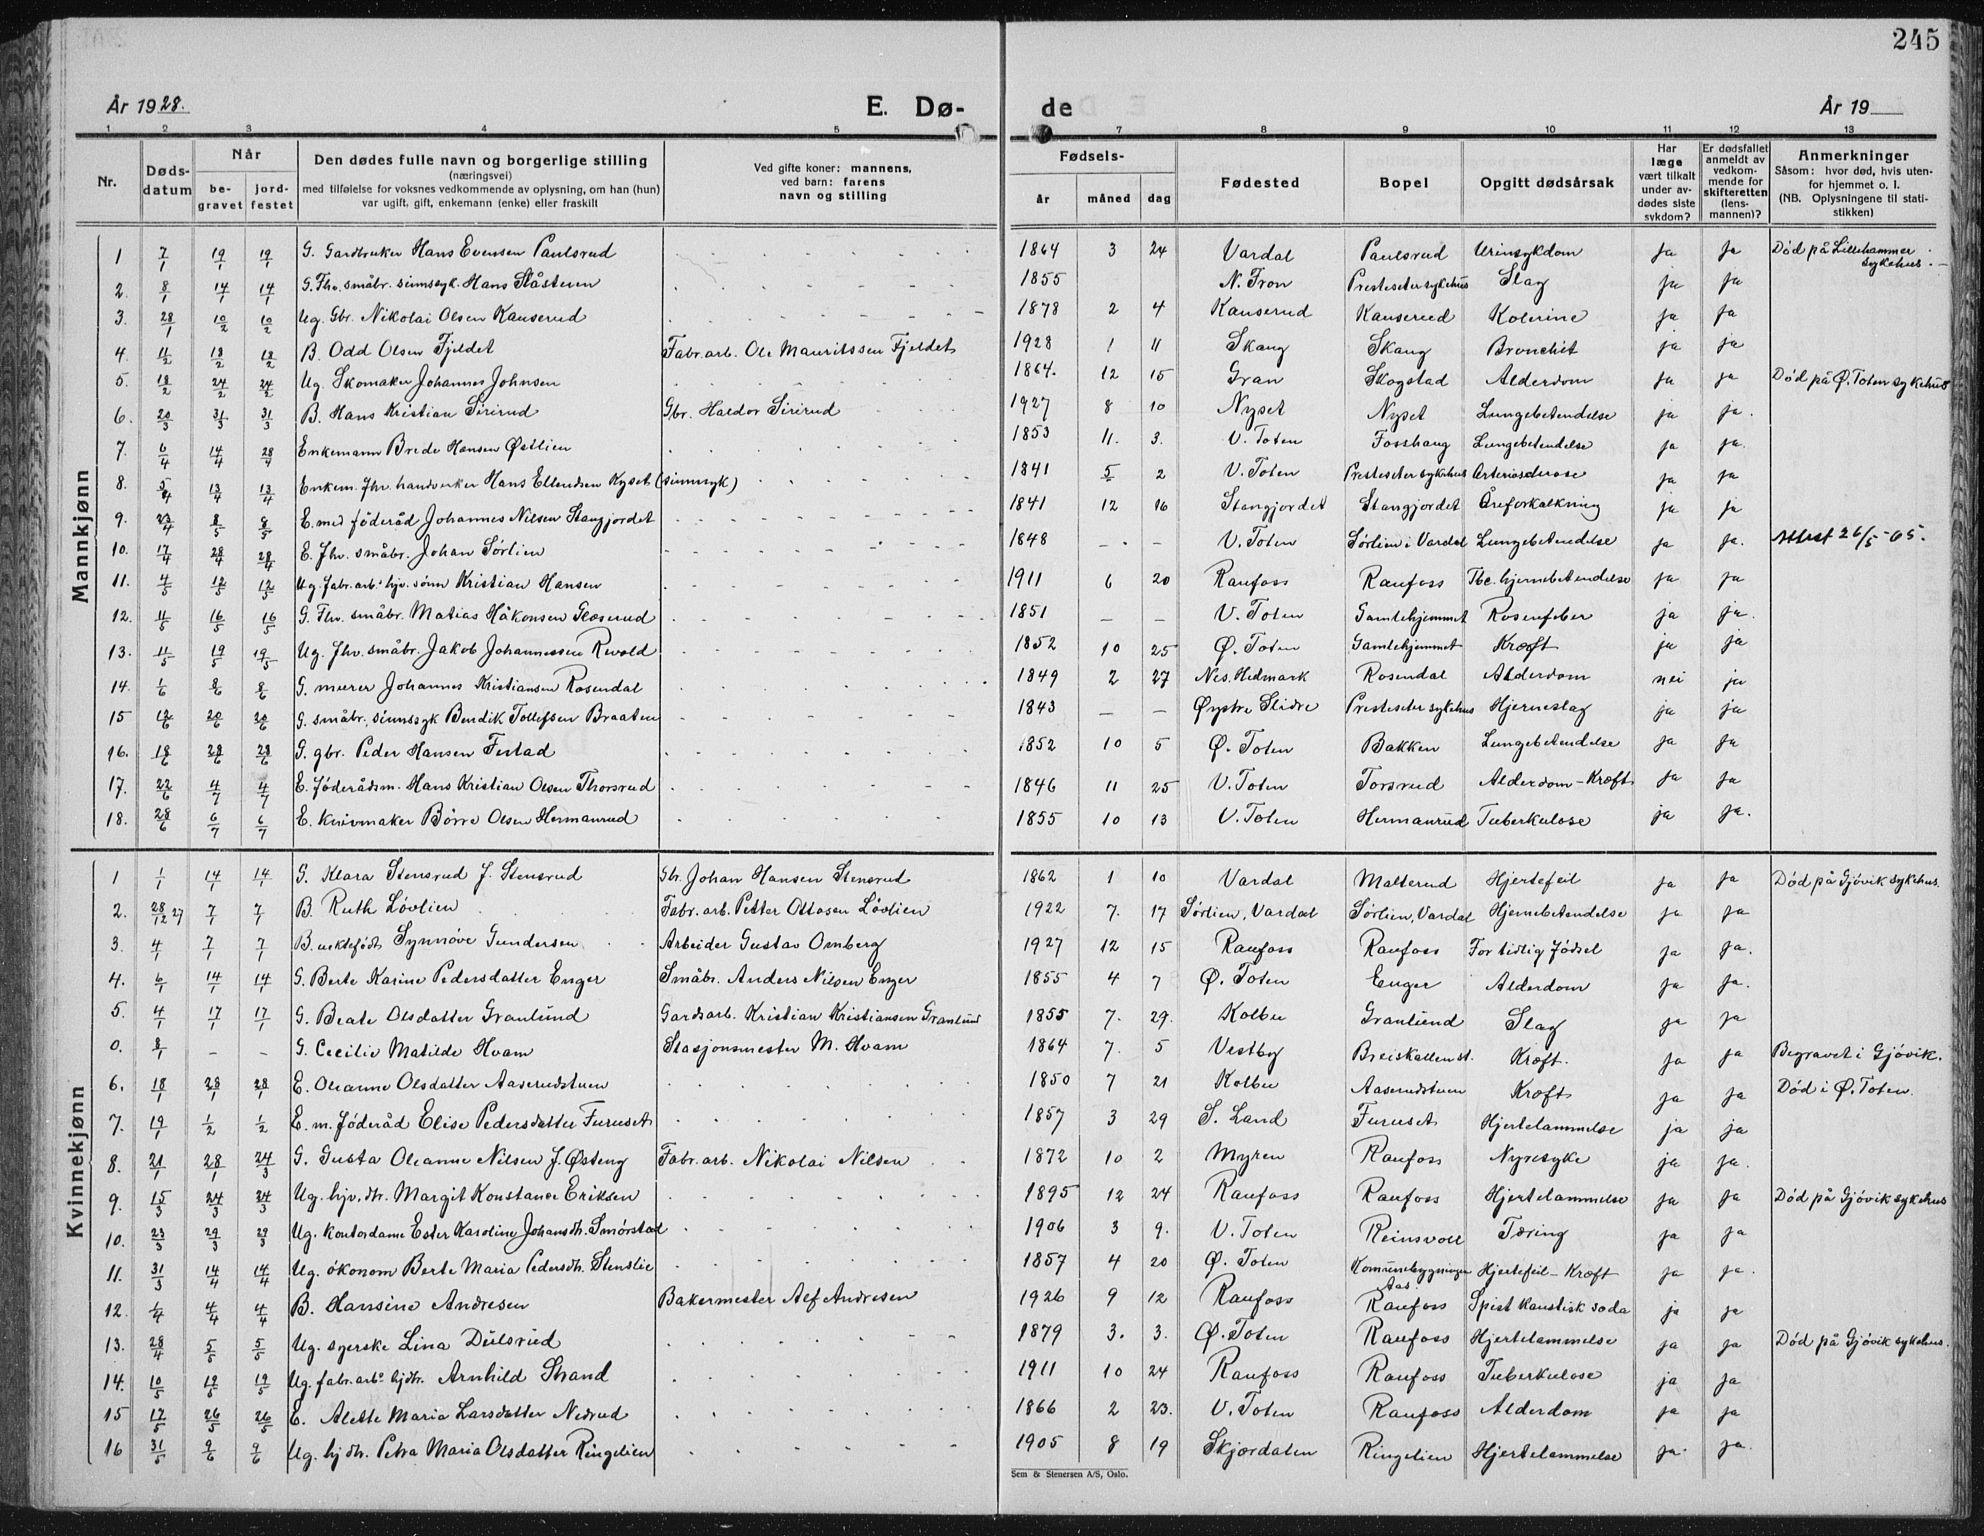 245
År 1928. E. Dø- de År 19
1 2 3 4 5 7 8 9 10 11 12 13
Nr. Døds-datum Når be-gravet jord-festet Den dødes fulle navn og borgerlige stilling (næringsvei) med tilføielse for voksnes vedkommende av oplysning, om han (hun) var ugift, gift, enkemann (enke) eller fraskilt Ved gifte koner: mannens, ved barn: farens navn og stilling Fødsels- år måned dag Fødested Bopel Opgitt dødsårsak Har læge vært tilkalt under av-dødes siste sykdom? Er dødsfallet anmeldt av vedkom-mende for skifteretten (lens-mannen)? Anmerkninger Såsom: hvor død, hvis uten-for hjemmet o. l. (NB. Oplysningene til stati-stikken)
Mannkjønn
1 7/1 19/1 19/1 G. Gardbruker Hans Evensen Paulsrud 1864 3 24 Vardal Paulsrud Urinsykdom ja ja Død på Lillehammer sykehus.
2. 8/1 14/1 14/1 G. Fhv. småbr. sinnssyk. Hans Ståstuen 1855 N. Fron Presteseter sykehus Slag ja ja
3. 28/1 10/2 10/2 Ug. Gbr. Nikolai Olsen Kauserud 1878 2 4 Kauserud Kauserud Kolerine ja ja
4. 11/2 18/2 18/2 B. Odd Olsen Fjeldet Fabr.arb. Ole Mauritssen Fjeldet 1928 1 11 Skaug Skaug Bronchit ja ja
5. 18/2 24/2 24/2 Ug. Skomaker Johannes Johnsen 1864. 12 15 Gran Skogstad Alderdom ja ja Død på Ø. Toten sykehus
6. 20/3 31/3 31/3 B. Hans Kristian Sirirud Gbr. Haldor Sirirud 1927 8 10 Nyset Nyset Lungebetendelse ja ja.
7. 6/4 14/4 28/4 Enkemann Brede Hansen Østlien 1853 11. 3. V. Toten Fosshaug Lungebetendelse ja ja.
8. 5/4 13/4 13/4 Enkem. fhv. handverker Hans Ellendsen Kyset (sinnssyk) 1841 5 2 V. Toten Presteseter sykehus ja ja
9. 23/4 8/5 8/5 E. med föderåd Johannes Nilsen Stangjordet 1841 12 16 Stangjordet Stangjordet Åreforkalkning ja ja
10. 17/4 28/4 28/4 E. Fhv. småbr. Johan Sørlien 1848 - - V. Toten Sørlien i Vardal Lungebetendelse ja ja. Attest 26/5-65.
11. 4/5 12/5 12/5 Ug. fabr. arb. hjv. sønn Kristian Hansen 1911 6 20 Raufoss Raufoss Tbc. hjernebetendelse ja ja
12. 11/5 16/5 16/5 G. Fhv. småbr. Matias Håkonsen Glæserud 1851 - - V. Toten Gamlehjemmet Rosenfeber ja ja.
13. 11/5 19/5 19/5 Ug. fhv. småbr. Jakob Johannessen Revold 1852 10 25 Ø. Toten Gamlehjemmet Kræft ja ja
14. 1/6 8/6 8/6 G. murer Johannes Kristiansen Rosendal 1849 2 27 Nes. Hedmark Rosendal Alderdom nei ja
15 12/6 20/6 20/6 G. småbr. sinnssyk Bendik Tollefsen Braaten 1843 - - Øystre Slidre Presteseter sykehus Hjerneslag ja ja
16. 18/6 28/6 28/6 G. gbr. Peder Hansen Festad 1852 10 5 Ø. Toten Bakken Lungebetendelse ja ja
17. 22/6 4/7 4/7 E. Föderådsm. Hans Kristian Olsen Thorsrud 1846 11 25 V. Toten Torsrud Alderdom-Kræft ja ja
18. 28/6 6/7 6/7 E. knivmaker Börre Olsen Hermanrud 1855 10 13 V. Toten Hermanrud Tuberkulose ja ja.
Kvinnekjønn
1 1/1 14/1 14/1 G. Klara Stensrud f. Stensrud Gbr. Johan Hansen Stensrud 1862 1 10 Vardal Malterud Hjertefeil ja ja Død på Gjövik sykehus.
2. 28/12 27 7/1 7/1 B. Ruth Lövlien Fabr. arb. Petter Ottosen Lövlien 1922 7. 17 Sørlien, Vardal Sørlien, Vardal Hjernebetendelse ja ja
3. 4/1 7/1 7/1 B. uektefødt Synnöve Gundersen Arbeider Gustav Omberg 1927 12 15 Raufoss Raufoss For tidlig födsel ja ja.
4. 6/1 14/1 14/1 G. Berte Karine Pedersdatter Enger Småbr. Anders Nilsen Enger 1855 4 7 Ø. Toten Enger Alderdom ja ja.
5. 4/1 17/1 17/1 G. Beate Olsdatter Granlund Gardsarb. Kristian Kristiansen Granlund 1855 7. 29. Kolbu Granlund Slag ja ja
0. 8/1 - - G. Cecilie Matilde Hvam Stasjonsmester M. Hvam 1864 7. 5 Vestby Breiskallen st. Kræft. ja ja Begravet i Gjövik.
6. 18/1 28/1 28/1 E. Oleanne Olsdatter Aaserudstuen 1850 7 21 Kolbu Aaserudstuen Kræft ja ja Død i Ø. Toten.
7. 19/1 1/2 1/2 E. m. föderåd Elise Pedersdatter Furuset 1857 3 29 S. Land Furuset Hjertelammelse ja ja
8. 21/1 28/1 24/3 G. Gusta Oleanne Nilsen f. Østeng Fabr. arb. Nikolai Nilsen 1872 10 2 Myren Raufoss Nyresyke ja ja.
9. 15/3 24/3 24/3 Ug. hjv. dtr. Margit Konstance Eriksen 1895 12 24 Raufoss Raufoss Hjertelammelse ja ja Død på Gjövik sykehus
10. 23/3 29/3 29/3 Ug. kontordame Ester Karoline Johansdtr. Smørstad 1906 3 9. V. Toten Reinsvoll Tæring ja ja
11. 31/3 14/4 14/4 Ug. økonom Berte Maria Pedersdtr. Stenslie 1857 4 20 Ø. Toten Komunebygningen Aas Hjertefeil-Kræft ja ja.
12. 1/4 4/4 4/4 B. Hansine Andresen Bakermester Alf Andresen 1926 9 12 Raufoss Raufoss Spist kaustisk soda ja ja
13. 28/4 5/5 5/5 Ug. syerske Lina Dulsrud 1879 3. 3. Ø. Toten Raufoss Hjertelammelse ja ja Død på Gjövik sykehus.
14. 10/5 19/5 19/5 Ug. fabr. arb. hjdtr. Arnhild Strand 1911 10 24 Raufoss Raufoss Tuberkulose ja ja
15 17/5 26/5 26/5 E. Alette Maria Larsdatter Nedrud 1866 2 23. V. Toten Raufoss Alderdom ja ja
16 31/5 9/6 9/6 Ug. hjdtr. Petra Maria Olsdatter Ringelien 1905 8 19 Skjærdalen Ringelien Hjertelammelse ja. ja.
Sem & Stenersen A/S, Oslo.